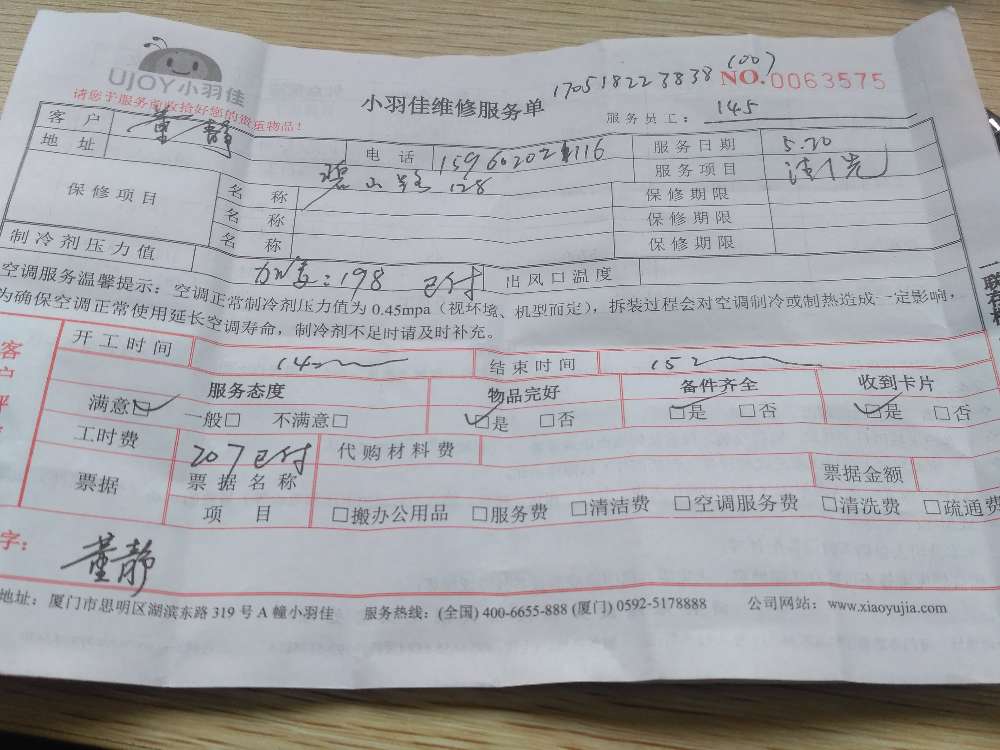 UJOY小羽佳
请您于服务前收拾好您的贵重物品!
小羽佳维修服务单
170518223838 (00)
NO.0063575
服务员工: 145
客 户 董静 电 话 服务日期 5.20
地 址 128 服务项目 清洗
保修项目 名 称 保修期限
名 称 保修期限
名 称 保修期限
制冷剂压力值 :198 已付 出风口温度
空调服务温馨提示:空调正常制冷剂压力值为0.45mpa(视环境、机型而定),拆装过程会对空调制冷或制热造成一定影响,
为确保空调正常使用延长空调寿命,制冷剂不足时请及时补充。
开工时间 14 结束时间 152
服务态度 物品完好 备件齐全 收到卡片
满意☑ 一般□ 不满意□ ☑是 □否 ☑是 □否 ☑是 □否
工时费 207已付 代购材料费
票据 票据名称 票据金额
项 目 □搬办公用品 □服务费 □清洁费 □空调服务费 □清洗费 □疏通费
字: 董静
地址:厦门市思明区湖滨东路319号A幢小羽佳 服务热线:(全国) 400-6655-888 (厦门) 0592-5178888 公司网站:www.xiaoyujia.com